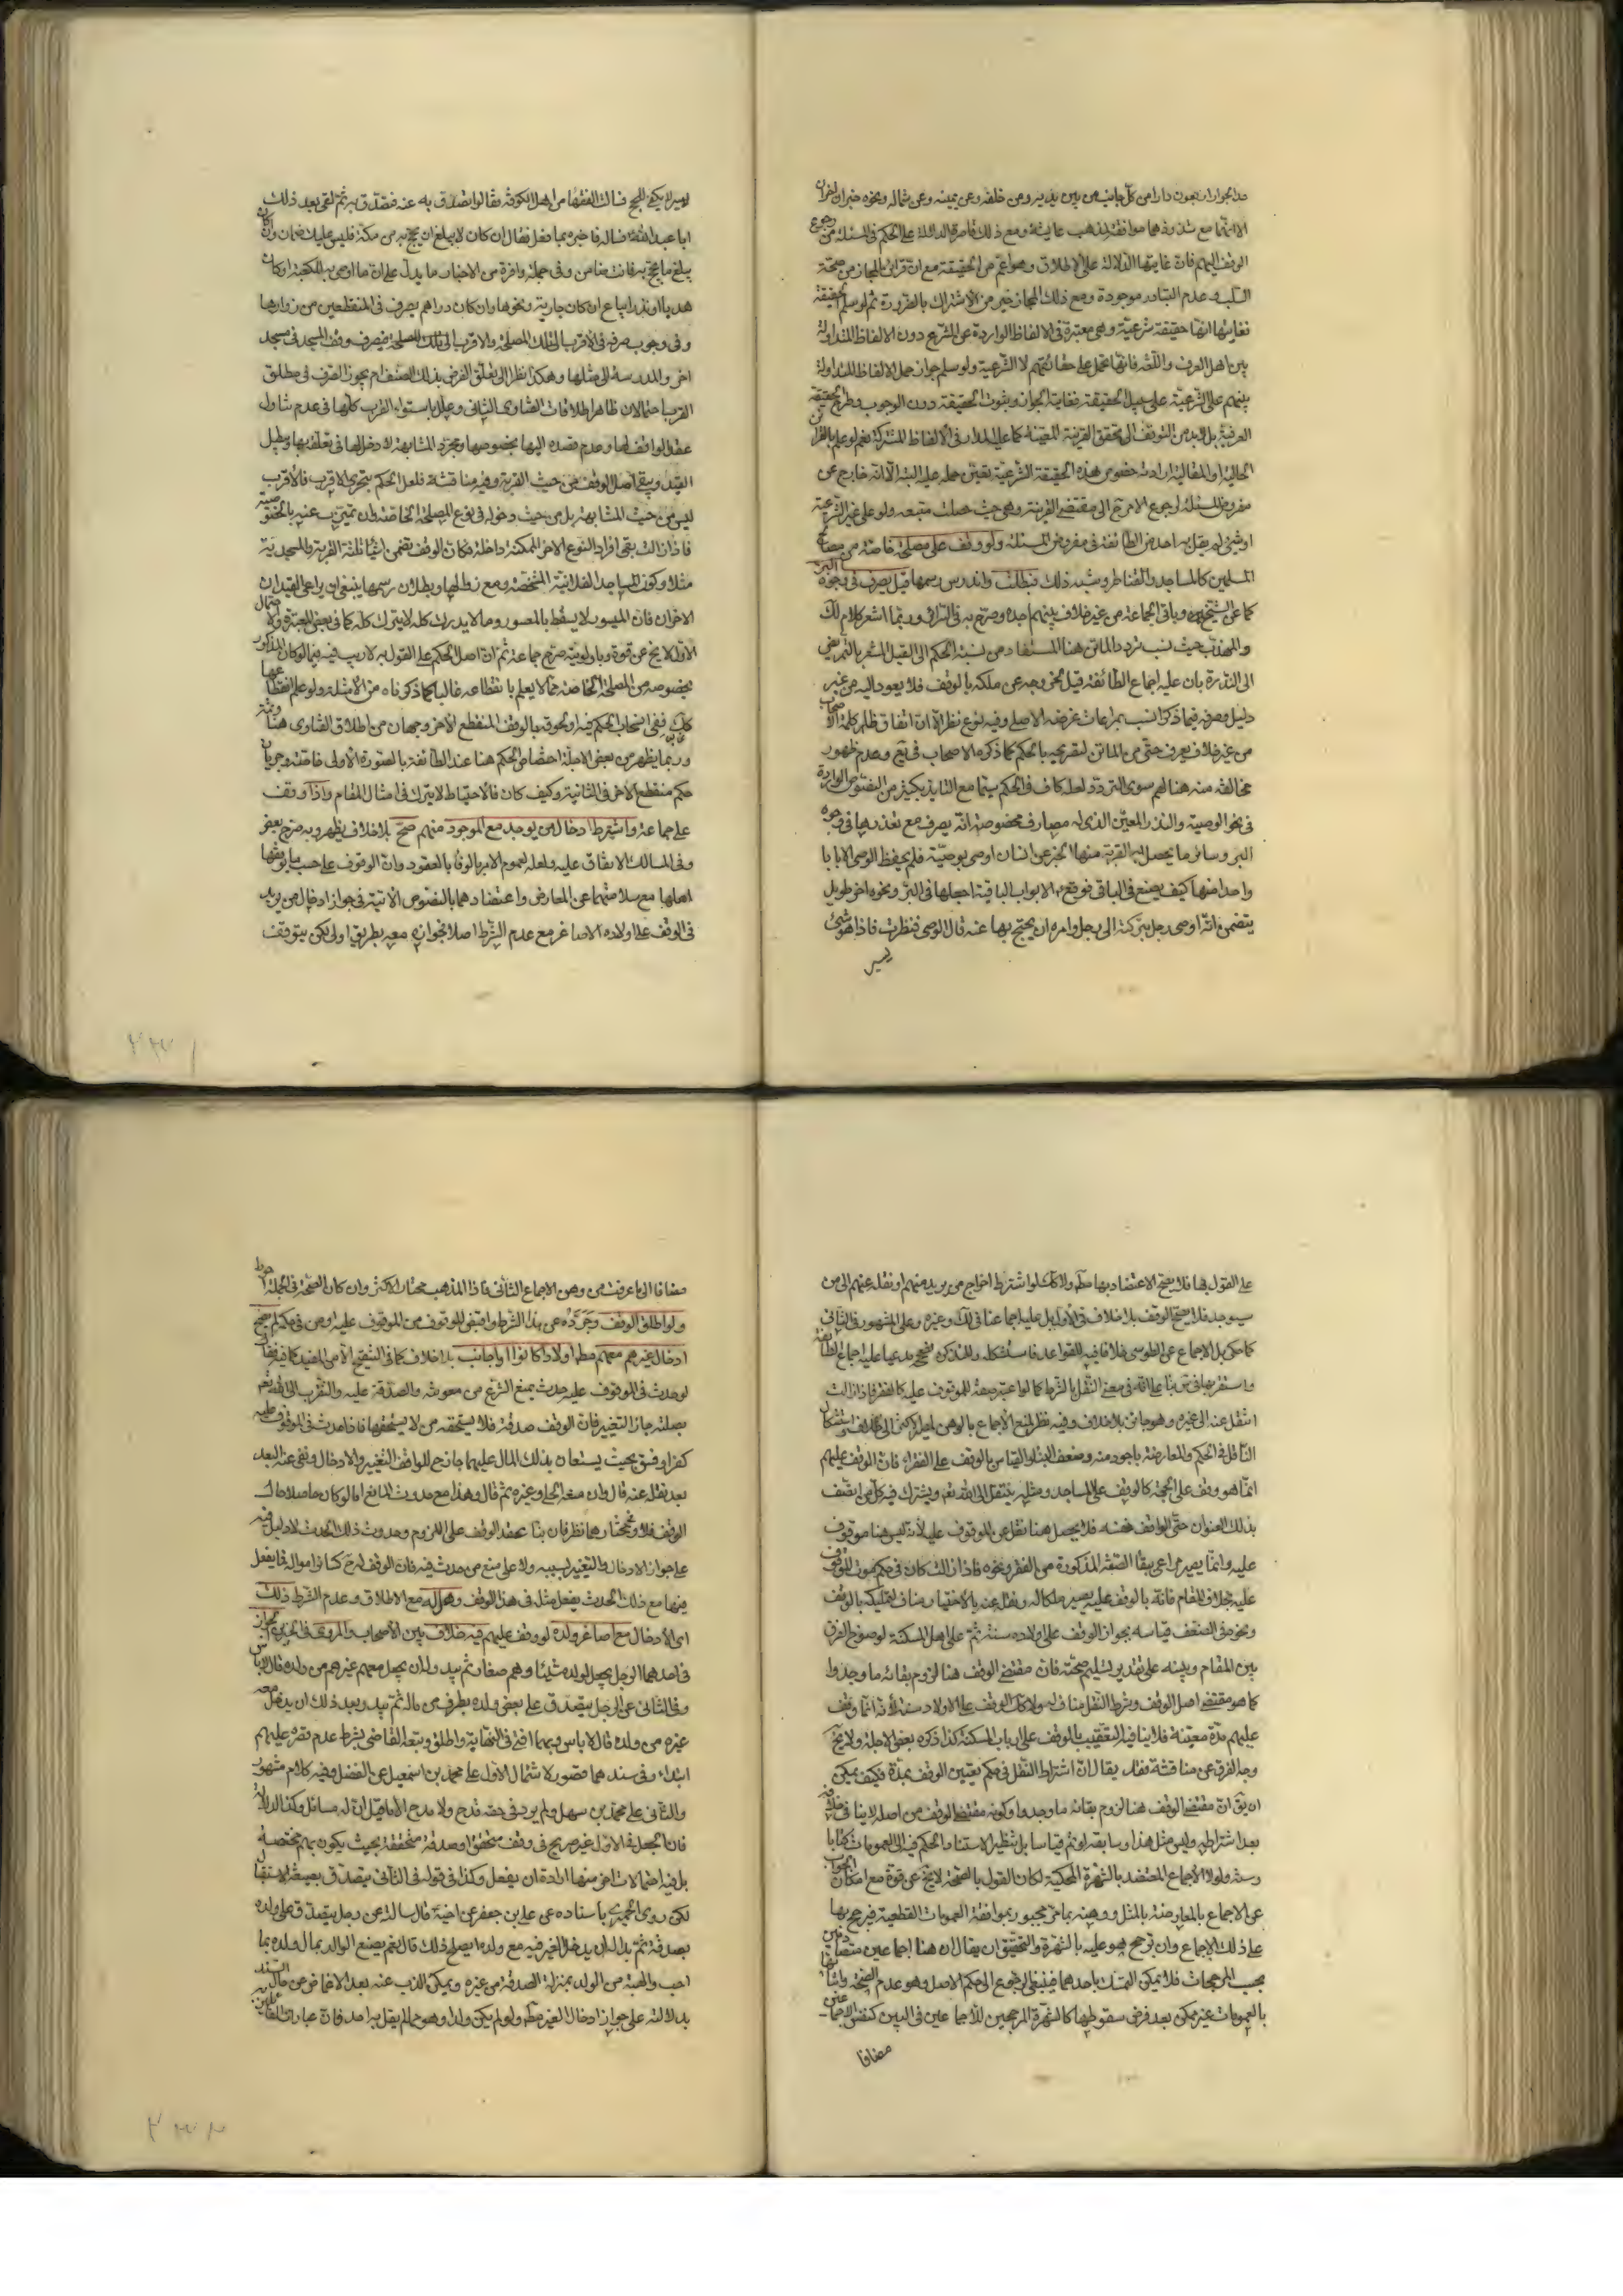 حد الجوار اربعون دارا من كل جانب من بين يديه ومن خلفه وعن يمينه وعن شماله ونحوه خبران اخران
الا انها مع شذوذها موافقة لمذهب عايشة ومع ذلك قاصرة الدلالة على الحكم في المسئلة من رجوع
الوقف اليهم فان غايتها الدلالة على الاطلاق وهو اعم من الحقيقة مع ان قرائن المجاز من صحة
السلب وعدم التبادر موجودة ومع ذلك المجاز خير من الاشتراك بالضرورة ثم لو سلم الحقيقة
فغايتها انها حقيقة شرعية وهي معتبرة في الالفاظ الواردة عن الشرع دون الالفاظ المتداولة
بين اهل العرف واللغة فانها تحمل على حقائقهم لا الشرعية ولو سلم جواز حمل الالفاظ المتداولة
بينهم على الشرعية على سبيل الحقيقة فغايته الجواز وثبوت الحقيقة دون الوجوب وطرح الحقيقة
العرفية بل لابد من التوقف الى تحقق القرينة المعينة كما عليه المدار في الالفاظ المشتركة نعم لو علم بالقرائن
الحالية او المقالية ارادة خصوص هذه الحقيقة الشرعية تعين حمله عليه البتة الا انه خارج عن
مفروض المسئلة لرجوع الامر ح الى مقتضى القرينة وهي حيث حصلت متبعة ولو على غير الشرعية
او شيئ لم يقل به احد من الطائفة في مفروض المسئلة ولو وقف على مصلحة خاصة من مصالح
المسلمين كالمساجد والقناطر وشبه ذلك فبطلت واندرس رسمها قيل يصرف في وجوه البر
كما عن الشيخ وباقي الجماعة من غير خلاف بينهم اجده وصرح به في التذكرة وربما اشعر كلام لك
والمهذب حيث نسب تردد الماتن هنا المستفاد من نسبة الحكم الى القيل المشعر بالتمريض
الى الندرة بان عليه اجماع الطائفة قيل لخروجه عن ملكه بالوقف فلا يعود اليه من غير
دليل وصرفه فيما ذكر انسب بمراعات غرضه الاصلي وفيه نوع نظر الا ان اتفاق ظاهر كلمة الاصحاب
من غير خلاف يعرف حتى من الماتن لتصريحه بالحكم كما ذكره الاصحاب في يع وعدم ظهور
مخالفته منه هنا لهم سوى التردد لعله كاف في الحكم سيما مع التايد بكثير من النصوص الواردة
في نحو الوصية والنذر المعين الذي له مصارف مخصوصة انه يصرف مع تعذرها في وجوه
البر وسائر ما يحصل به القربة منها الخبر عن انسان اوصى بوصية فلم يحفظ الوصي الا بابا
واحدا منها كيف يصنع في الباقي فوقع ع الابواب الباقية اجعلها في البر ونحوه اخر طويل
يتضمن انه اوصى رجل بتركته الى رجل وامره ان يحج بها عنه قال الوصي فنظرت فاذا هو شيئ
يسير
يسير لا يكفي للحج فسالت الفقهاء من اهل الكوفة فقالوا تصدق به عنه فتصدق به ثم لقي بعد ذلك
ابا عبد الله ع فساله فاخبره بما فعل فقال ان كان لا يبلغ ان يحج به من مكة فليس عليك ضمان وان كان
يبلغ ما يحج به فانت ضامن وفي جملة وافرة من الاخبار ما يدل على ان ما اوصى به للكعبة او كان
هديا او نذرا يباع ان كان جارية ونحوها وان كان دراهم يصرف في المنقطعين من زوارها
وفي وجوب صرفه في الاقرب الى تلك المصلحة والاقرب الى تلك المصلحة فيصرف وقف المسجد في مسجد
اخر والمدرسة الى مثلها وهكذا نظرا الى تعلق الغرض بذلك الصنف ام يجوز الصرف في مطلق
القرب احتمالان ظاهر اطلاقات الفتاوى الثاني وعلل باستواء القرب كلها في عدم تناول
عقد الواقف لها وعدم قصده اليها بخصوصها ومجرد المشابهة لا دخل لها في تعلقه بها ويبطل
القيد ويبقى اصل الوقف من حيث القربة وفيه مناقشة فلعل الحكم بتحري الاقرب فالاقرب
ليس من حيث المشابهة بل من حيث دخوله في نوع المصلحة الخاصة وان تميزت عنه بالخصوصية
فاذا زالت بقي افراد النوع الاخر الممكنة داخلة فكان الوقف تضمن اشياء ثلثة القربة والمسجدية
مثلا وكون المساجد الفلانية المشخصة ومع زوالها وبطلان رسمها ينبغي ان يراعى القيدان
الاخران فان الميسور لا يسقط بالمعسور وما لا يدرك كله لا يترك كله كما في بعض المعتبرة ولا احتمال
الاول لا يخ عن قوة وباولويته صرح جماعة ثم ان اصل الحكم على القول به لا ريب فيه فيما لو كان المذكور
بخصوصه من المصلحة الخاصة مما لا يعلم بانقطاعه غالبا كما ذكرناه من الامثلة ولو علم انقطاعها
كك ففي انسحاب الحكم فيه او لحوقه بالوقف المنقطع الاخر وجهان من اطلاق الفتاوى هنا
وربما يظهر من بعض الاجلة اختصاص الحكم هنا عند الطائفة بالصورة الاولى خاصة وجريان
حكم منقطع الاخر في الثانية وكيف كان فالاحتياط لا يترك في امثال المقام واذا وقف
على جماعة واشترط ادخال من يوجد مع الموجود منهم صح بلا خلاف يظهر وبه صرح بعض
وفي المسالك الاتفاق عليه ولعله لعموم الامر بالوفاء بالعقود وان الوقوف على حسب ما يوقفها
اهلها مع سلامتهما عن المعارض واعتضادهما بالنصوص الاتية في جواز ادخال من يريد
في الوقف على اولاده الاصاغر مع عدم الشرط اصلا فجوازه معه بطريق اولى لكن يتوقف
على القول بها فلا يصح الاعتضاد بها مطلقا ولا كك لو اشترط اخراج من يريد منهم او نقله عنهم الى من
سيوجد فلا يصح الوقف بلا خلاف في الاول بل عليه اجماعنا في لك وغيره وعلى المشهور في الثاني
كما حكي بل الاجماع عن الطوسي خلافا فيه للقواعد فاستشكله وللتذكرة فصححه مدعيا عليه اجماع الطائفة
واستقر بها في س بناء على انه في معنى النقل بالشرط كما لو اعتبر صفة للموقوف عليه كالفقر فاذا زالت
انتقل عنه الى غيره وهو جائز بلا خلاف وفيه نظر لمنع الاجماع بالوهن بمصير الاكثر الى خلافه واستشكال
الناقل له في الحكم والمعارضة باجود منه وضعف البناء والقياس بالوقف على الفقراء فان الوقف عليهم
انما هو وقف على الجهة كالوقف على المساجد ومثله ينتقل الى الله تعم ويشترك فيه كل من اتصف
بذلك العنوان حتى الواقف نفسه فلا يحصل هنا نقل عن الموقوف عليه لانه ليس هنا موقوف
عليه وانما يصير مراعى ببقاء الصفة المذكورة من الفقر ونحوه فاذا زالت كان في حكم موت الموقوف
عليه بخلاف المقام فانه بالوقف عليه يصير ملكا له ونقله عنه بالاختيار مناف لتمليكه بالوقف
ونحوه في الضعف قياسه بجواز الوقف على اولاده سنة ثم على اهل المسكنة لوضوح الفرق
بين المقام وبينه على تقدير تسليم صحته فان مقتضى الوقف هنا لزوم بقائه ما وجدوا
كما هو مقتضى اصل الوقف وشرط النقل مناف له ولا كك الوقف على الاولاد سنة لانه انما وقف
عليهم مدة معينة فلا ينافيه التعقيب بالوقف على ارباب المسكنة كذا ذكره بعض الاجلة ولا يخ
وجه الفرق عن مناقشة فقد يقال ان اشتراط النقل في حكم تعيين الوقف بمدة فكيف يمكن
ان يق ان مقتضى الوقف هنا لزوم بقائه ما وجدوا وكونه مقتضى الوقف من اصله لا ينافي
بعد اشتراطه وليس مثل هذا وسابقه لو تم قياسا بل تنظير لاستناد الحكم فيه الى العمومات كتابا
وسنة ولولا الاجماع المعتضد بالشهرة المحكية لكان القول بالصحة لا يخ عن قوة مع امكان الجواب
عن الاجماع بالمعارضة بالمثل ووهنه بما مر مجبور بموافقة العمومات القطعية فيرجح بها
على ذلك الاجماع وان ترجح هو عليه بالشهرة والتحقيق ان يقال ان هنا اجماعين متصادمين
بحسب المرجحات فلا يمكن التمسك باحدهما فينبغي الرجوع الى حكم الاصل وهو عدم الصحة واثباتها
بالعمومات غير ممكن بعد فرض سقوطها كالشهرة المرجحين للاجماعين في البين كنفس الاجماعين
مضافا
مضافا الى ما عرفت من وهن الاجماع الثاني فاذا المذهب مختار الاكثر وان كان الصحة في الجملة احوط
ولو اطلق الوقف وجرده عن هذا الشرط واقبض الموقوف من الموقوف عليه او من في حكمه لم يصح
ادخال غيرهم معهم مطلقا اولادا كانوا او اجانب بلا خلاف كما في التنقيح الا من المفيد كما فيه فقال
لو حدث في الموقوف عليه حدث يمنع الشرع من معونته والصدقة عليه والتقرب الى الله تعم
بصلته جاز التغيير فان الوقف صدقة فلا يستحقه من لا يستحقها فاذا حدث في الموقوف عليه
كفر او فسق بحيث يستعان بذلك المال عليهما جاز ح للواقف التغيير والادخال ونفى عنه البعد
بعد نقله عنه قال وان منعه الحلي وغيره ثم قال وهذا مع حدوث المانع اما لو كان حاصلا حال
الوقف فلا ومختارهما نظر فان بناء عقد الوقف على اللزوم وحدوث ذلك الحدث لا دليل فيه
على جواز الادخال والتغيير لسببه ولا على منع من حدث فيه فان الوقف له ح كسائر امواله فما يفعل
فيها مع ذلك الحدث يفعل مثله في هذا الوقف وهل له مع الاطلاق وعدم الشرط ذلك
اي الادخال مع اصاغر ولده لو وقف عليهم فيه خلاف بين الاصحاب والمروي في الخبرين الجواز
في احدهما الرجل يجعل لولده شيئا وهم صغار ثم يبدو له ان يجعل معهم غيرهم من ولده قال لا باس
وفي الثاني عن الرجل يتصدق على بعض ولده بطرف من ماله ثم يبدو له بعد ذلك ان يدخل معه
غيره من ولده قال لا باس وبهما افتى في النهاية واطلق وتبعه القاضي بشرط عدم قصره عليهم
ابتداء وفي سندهما قصور لاشتمال الاول على محمد بن اسمعيل عن الفضل وفيه كلام مشهور
والثاني على محمد بن سهل ولم يرد في حقه قدح ولا مدح الا ما قيل ان له مسائل وكذا الدلالة
فان الجعل في الاول غير صريح في وقف متحقق او صدقة متحققة بحيث يكون بهم مختصة
بل فيه احتمالات اخر منها ارادة ان يفعل وكذا في قوله في الثاني يتصدق بصيغة الاستقبال
لكن روى الحميري باسناده عن علي بن جعفر عن اخيه قال سالته عن رجل يتصدق على ولده
بصدقة ثم بدا له ان يدخل الغير فيه مع ولده ايصلح ذلك قال نعم يصنع الوالد بمال ولده ما
احب والهبة من الولد بمنزلة الصدقة من غيره ويمكن الذب عنه بعد الاغماض عن حال السند
بدلالته على جواز ادخال الغير مطلقا ولو لم يكن ولدا وهو مما لم يقل به احد فان عبارات القائلين